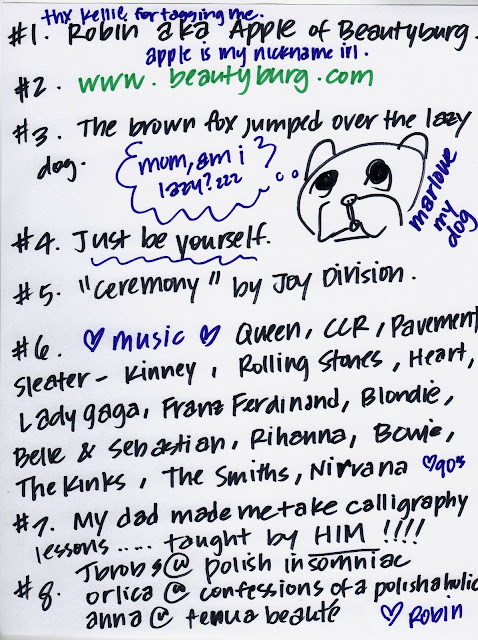 thx kellie for tagging me.
#1. Robin aka Apple of Beautyburg.
apple is my nickname irl.
#2. www.beautyburg.com
#3. The brown fox jumped over the lazy
dog.
mom, am i
lazy? zzz
marlowe
my
dog
#4. Just be yourself.
#5. "Ceremony" by Joy Division.
#6. ♡ music ♡ Queen, CCR, Pavement
Sleater-Kinney, Rolling Stones, Heart,
Lady gaga, Franz Ferdinand, Blondie,
Belle & Sebastian, Rihanna, Bowie,
The Kinks, The Smiths, Nirvana ♡90's
#7. My dad made me take calligraphy
lessons..... taught by HIM !!!!
#8. Jbrobs @ polish insomniac
orlica @ confessions of a polishaholic
anna @ tenua beauté
♡ Robin